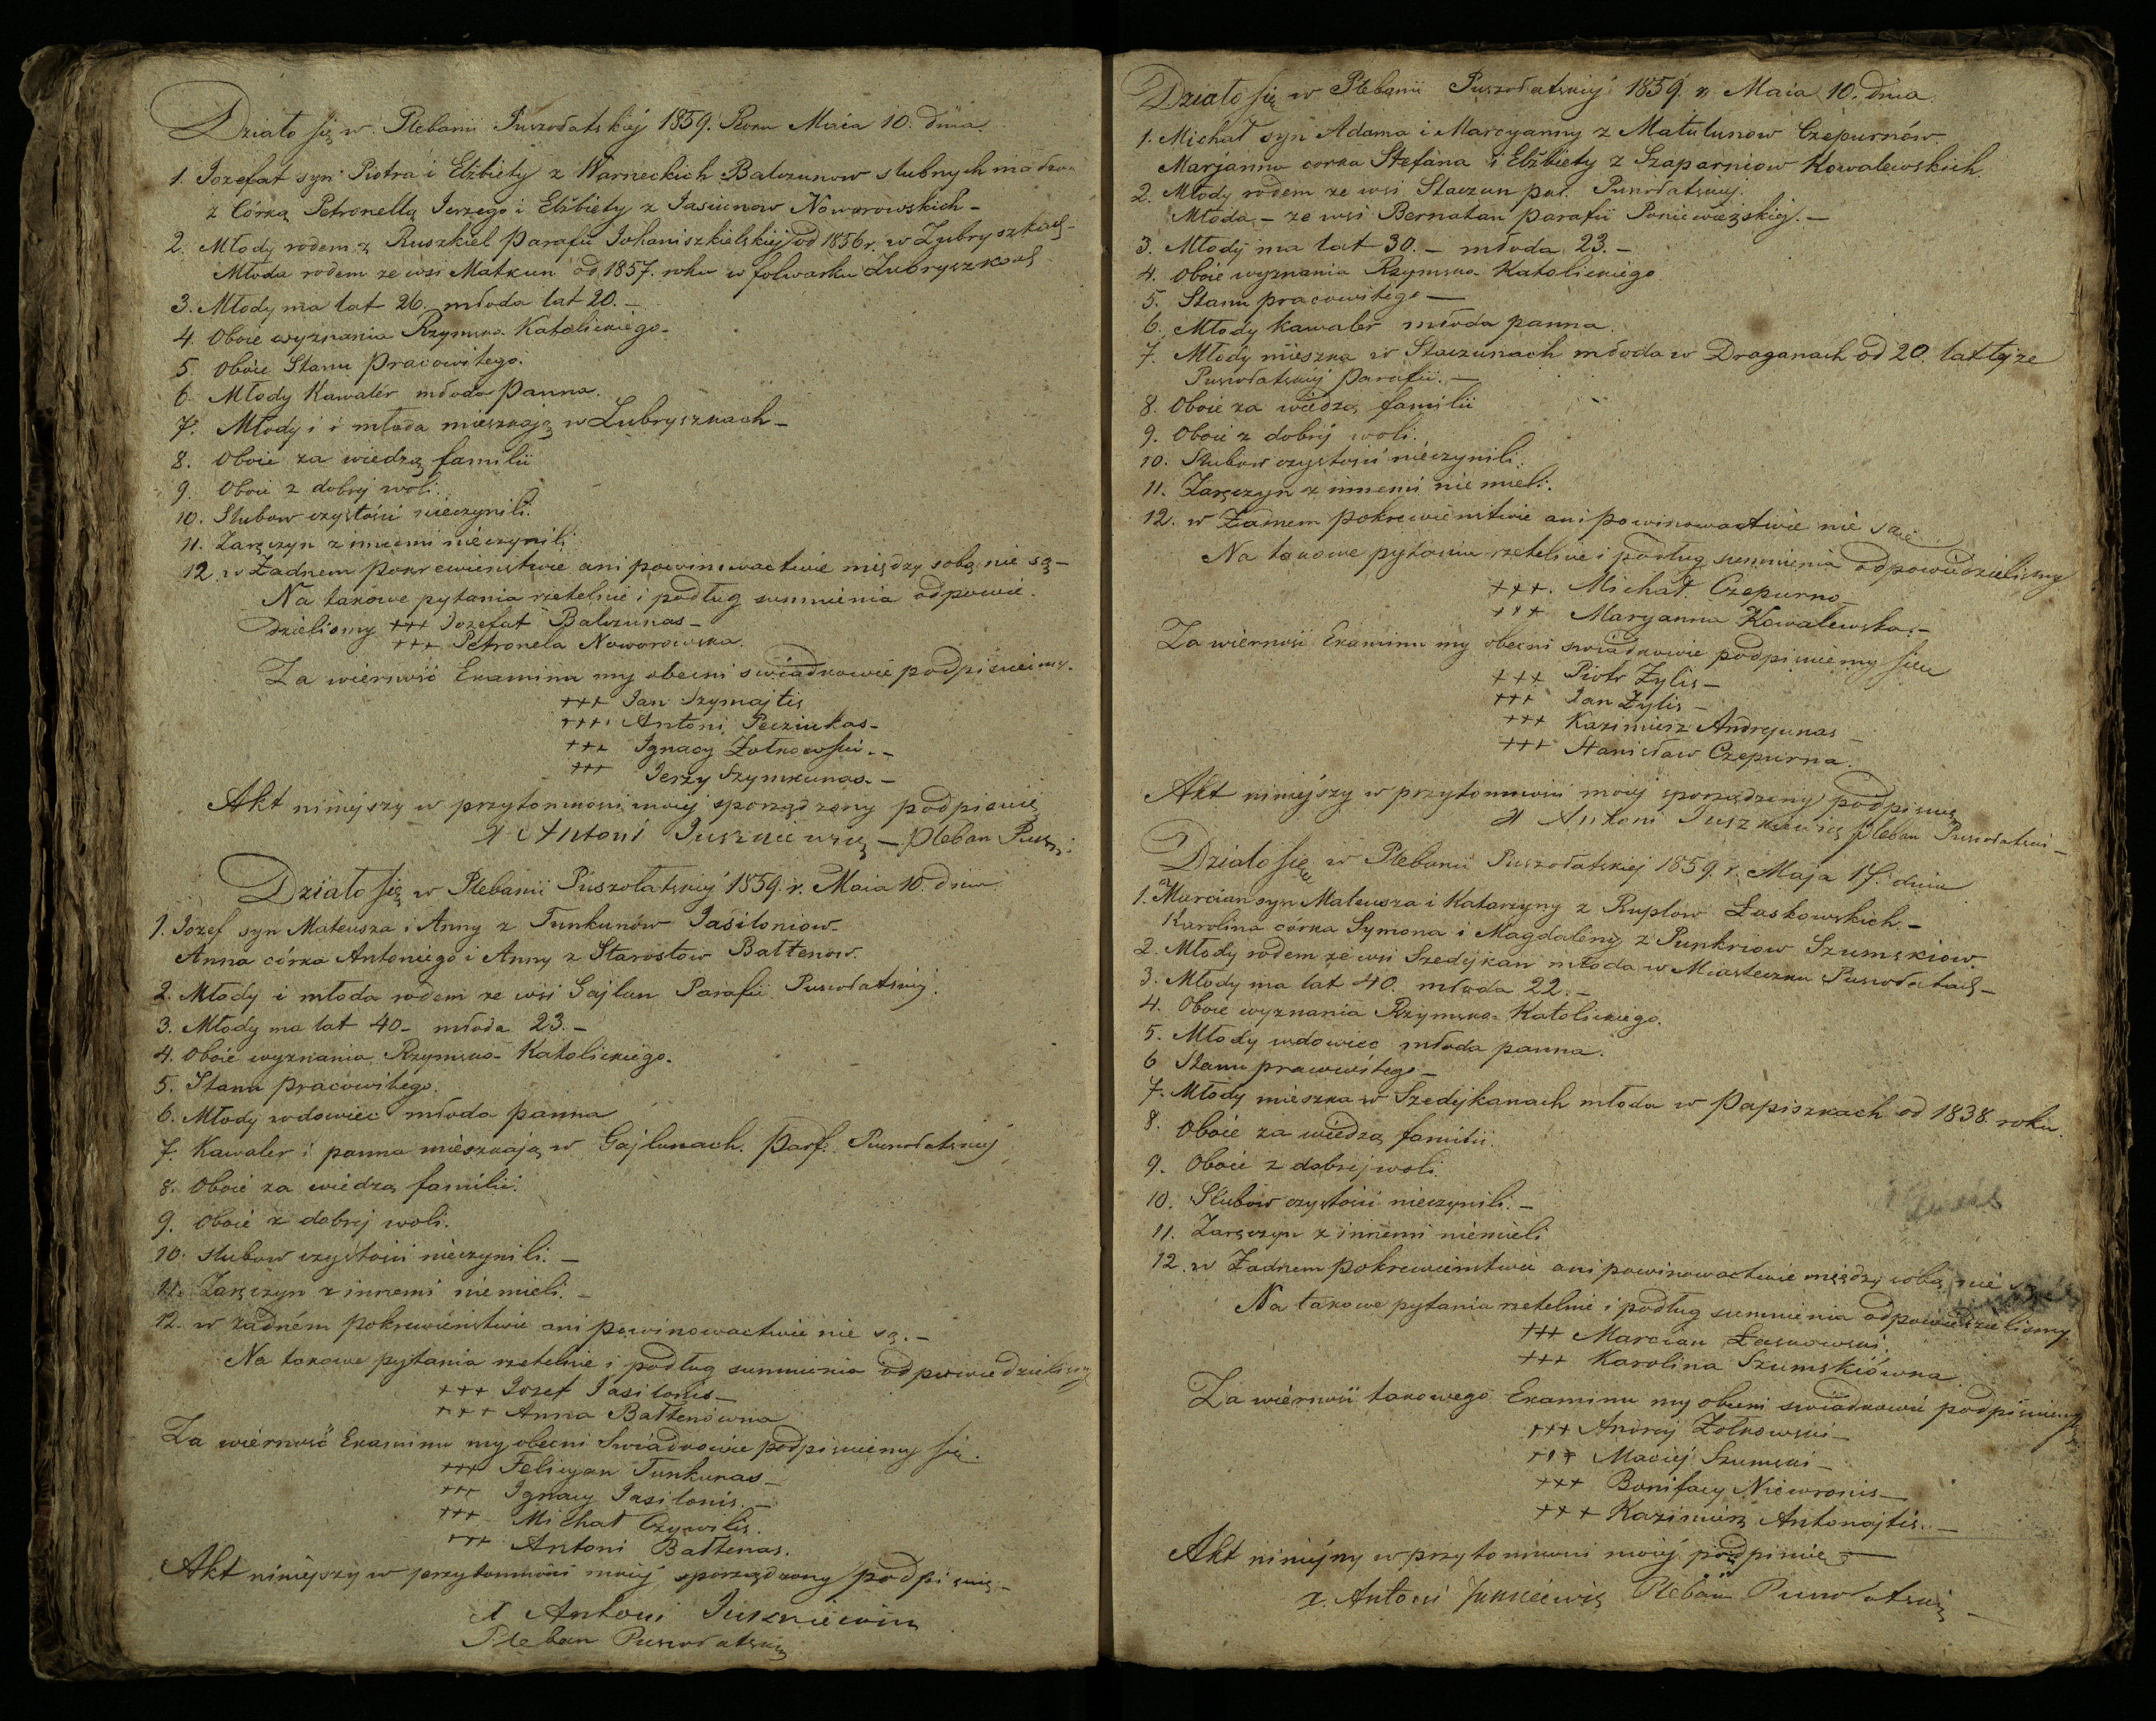 Działo się w Plebanii Puszołatskiej 1859. Roku Maia 10. dnia.
1. Jozefat syn Piotra i Elżbiety z Warneckich Balczunow slubnych
z Córką Petronellą Jerzego i Elżbiety z Jasiunow Noworowskich –
2. Młody rodem z Ruszkiel Parafii Johaniszkielskiej od 1856 r. w Lubryszkach –
Młoda rodem ze wsi Matkun od 1857. roku w folwarku Lubryszkach
3. Młody ma lat 26. młoda lat 20. –
4. Oboie wyznania Rzymsko Katolickiego –
5. Oboie Stanu Pracowitego.
6. Młody Kawaler młoda Panna.
7. Młody i i młoda mieszkają w Lubryszkach –
8. Oboie za wiedzą familii
9. Oboie z dobrej woli.
10. Slubow czystości nieczynili.
11. Zaręczyn z innemi nieczynili
12. w Żadnem pokrewieństwie ani powinowactwie między sobą nie są –
Na takowe pytania rzetelnie i podług sumnienia odpowie-
dzielismy +++ Jozefat Balczunas –
+++ Petronela Noworowska.
Za wierność Examinu my obecni swiadkowie podpisuiemy.
+++ Jan Szymajtis
+++ Antoni Pecziukas –
+++ Ignacy Żołkowski. –
+++ Jerzy Szymkunas. –
Akt niniejszy w przytomności moiej sporządzony podpisuię
X Antoni Juszkiewicz – Pleban Pusz:
Działo się w Plebanii Puszołatskiej 1859. r. Maia 10. dnia.
1. Jozef syn Mateusza i Anny z Tunkunów Jasiloniow –
Anna córka Antoniego i Anny z Starostow Bałtenow.
2. Młody i młoda rodem ze wsi Gajlun Parafii Puszołatskiej.
3. Młody ma lat 40 – młoda 23. –
4. Oboie wyznania Rzymsko Katolickiego.
5. Stanu pracowitego.
6. Młody wdowiec młoda panna
7. Kawaler i panna mieszkają w Gajlunach. Parf. Puszołatskiej
8. Oboie za wiedzą familii.
9. Oboie z dobrej woli.
10. slubow czystości nieczynili. –
11. Zaręczyn z innemi niemieli. –
12. w żadném pokrewieństwie ani powinowactwie nie są. –
Na takowe pytania rzetelnie i podług sumnienia odpowiedzielismy
+++ Jozef Jasilonis –
+++ Anna Bałtenówna
Za wierność Examinu my obecni Swiadkowie podpisuiemy się.
+++ Felicyan Tunkunas –
+++ Ignacy Jasilonis. –
+++ Michał Czywilis.
+++ Antoni Bałtenas.
Akt niniejszy w przytomności moiej sporządzony podpisuię –
X Antoni Juszkiewicz
Pleban Puszołatski
Działo się w Plebanii Puszołatskiej 1859. r. Maia 10. dnia.
1. Michał syn Adama i Marcyanny z Matulunow Czepurnów.
Marjanna corka Stefana i Elżbiety z Szaparniow Kowalewskich.
2. Młody rodem ze wsi Staczun par. Puszołatskiej.
Młoda – ze wsi Bernatan parafii Poniewieżskiej. –
3. Młody ma lat 30. – młoda 23. –
4. Oboie wyznania Rzymsko Katolickiego
5. Stanu pracowitego –
6. Młody kawaler młoda panna.
7. Młody mieszka w Staczunach młoda w Draganach od 20. lat tejże
Puszołatskiej parafii. –
8. Oboie za wiedzą familii
9. Oboie z dobrej woli.
10. Slubow czystości nieczynili.
11. Zaręczyn z innemi nie mieli.
12. w Żadnem pokrewieństwie ani powinowactwie nie są
Na takowe pytania rzetelnie i podług sumnienia odpowiedzielismy
+++. Michał Czepurno
+++ Maryanna Kowalewska. –
Za wierność Examinu my obecni swiadkowie podpisuiemy się
+++ Piotr Żylis –
+++ Jan Żylis –
+++ Kazimierz Andrejunas –
+++ Stanisław Czepurna.
Akt niniejszy w przytomności moiej sporządzony podpisuię
X Antoni Juszkiewicz Pleban Puszołatski –
Działo się w Plebanii Puszołatskiej 1859. r. Maja 17. dnia
1. Marcian syn Mateusza i Katarzyny z Ruplow Łaskowskich –
Karolina córka Symona i Magdaleny z Punkriow Szumskiow.
2. Młody rodem ze wsi Szedejkan młoda w Miasteczku Puszołatach –
3. Młody ma lat 40. młoda 22. –
4. Oboie wyznania Rzymsko Katolickiego.
5. Młody wdowiec młoda panna.
6 Stanu pracowitego –
7. Młody mieszka w Szedejkanach młoda w Papiszkach od 1838. roku.
8. Oboie za wiedzą familii.
9. Oboie z dobrej woli
10. Slubów czystości nieczynili. –
11. Zaręczyn z innemi niemieli
12. w Żadnem pokrewieństwie ani powinowactwie między sobą nie
Na takowe pytania rzetelnie i podług sumnienia odpowiedzielismy
+++ Marcian Łaskowski.
+++ Karolina Szumskiówna.
Za wierność takowego Examinu my obecni swiadkowie podpisuiemy się
+++ Andrej Żołkowski –
+++ Maciej Szumski –
+++ Bonifacy Niewronis –
+++ Kazimierz Antonajtis. –
Akt niniejszy w przytomności moiej podpisuię –
X. Antoni Juszkiewicz Pleban Puszołatski –